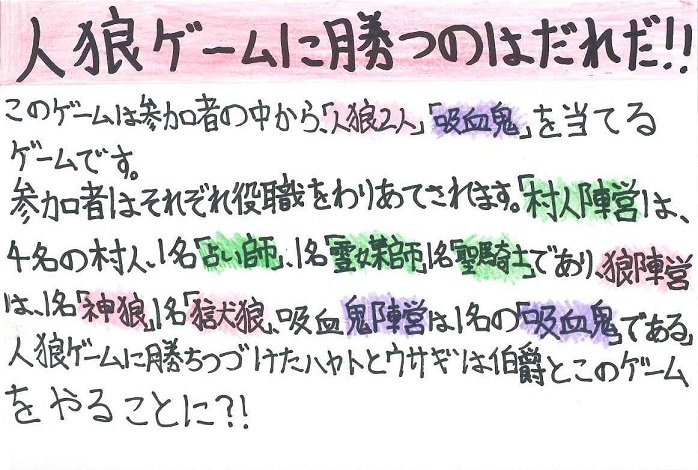 人狼ゲームに勝つのはだれだ!!
このゲームは参加者の中から、「人狼2人」「吸血鬼」を当てる
ゲームです。
参加者はそれぞれ役職をわりあてされます。「村人陣営」は、
4名の村人、1名「占い師」、1名「霊媒師」1名「聖騎士」であり、狼陣営
は、1名「神狼」、1名「獄犬狼」、吸血鬼陣営は1名の「吸血鬼」である」
人狼ゲームに勝ちつづけたハヤトとウサギは伯爵とこのゲーム
をやることに?!